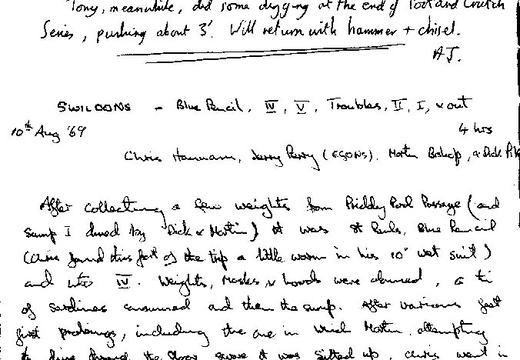 Tony, meanwhile, did some digging at the end of Foot and Crutch
Series, pushing about 3'. Will return with hammer + chisel.
AJ.
SWILDONS - Blue Pencil, IV, V, Troubles, II, I, & out
10th Aug '69 4 hrs
Chris Hannam, Jerry Perry (EGONS), Martin Bishop, & Dick
After collecting a few weights from Priddy Pool Passage (and
Sump I dived by Dick & Martin) it was St Pauls, Blue Pencil
(Chris found this part of the trip a little warm in his 10" wet suit)
and into IV. Weights, Masks & hoods were donned, a tin
of sardines consumed and then the sump. After various
first, including the one in which Martin, attempting
to dive through the sure it was silted up, Chris went in